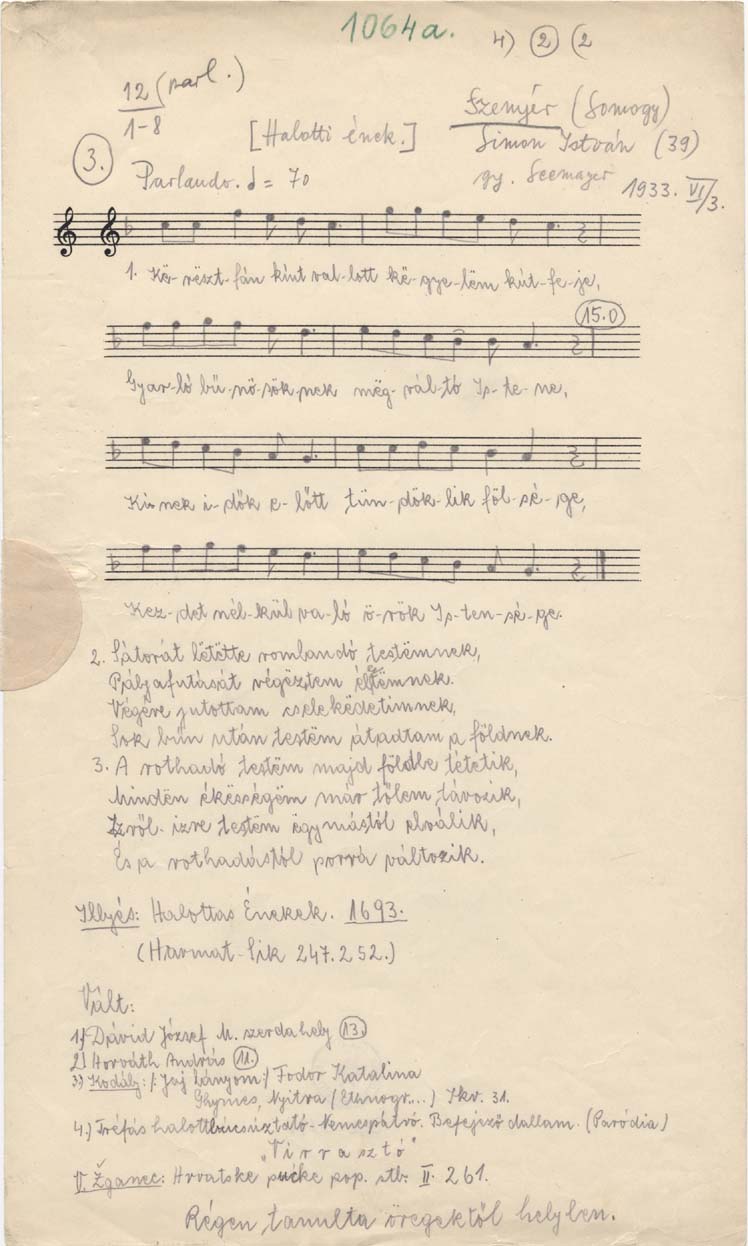 1064a. 4) 2 (2
12 (parl.)
1-8
Szenyér (Somogy)
[Halotti ének.] Simon István (39)
3. Parlando. = 70 gy. Seemayer 1933. VI/3.
1. Kë-rëszt-fán kínt val-lott kë-gye-lëm kút-fe-je,
15.0
Gyar-ló bű-nö-sök-nek mëg-vál-tó Is-te-ne,
Ki-nek i-dők e-lőtt tün-dök-lik föl-sé-ge,
Kez-det nél-kül va-ló ö-rök Is-ten-sé-ge.
2. Sátorát lëtëtte romlandó testëmnek,
Pályafutását végëztem éltëmnek.
Végére jutottam cselekëdetimnek,
Sok bűn után testëm átadtam a földnek.
3. A rothadó testëm majd földbe tétetik,
Mindën ékësségëm már tőlem távozik,
Izről-izre testëm ëgymástól elválik,
És a rothadástól porrá változik.
Illyés: Halottas Énekek. 1693.
(Harmat-Sik 247.252.)
Vált:
1.) Dávid József M. szerdahely 13.
2.) Horváth András 11.
3.) Kodály: /: Jaj lányom :/ Fodor Katalina
Ghymes, Nyitra (Ethnogr...) Tkv. 31.
4.) Tréfás halottbúcsúztató-Nemespátró. Befejező dallam. (Paródia)
"Virrasztó"
V. Žganec: Hrvatske pučke pop. stb. II. 261.
Régen tanulta öregektől helyben.